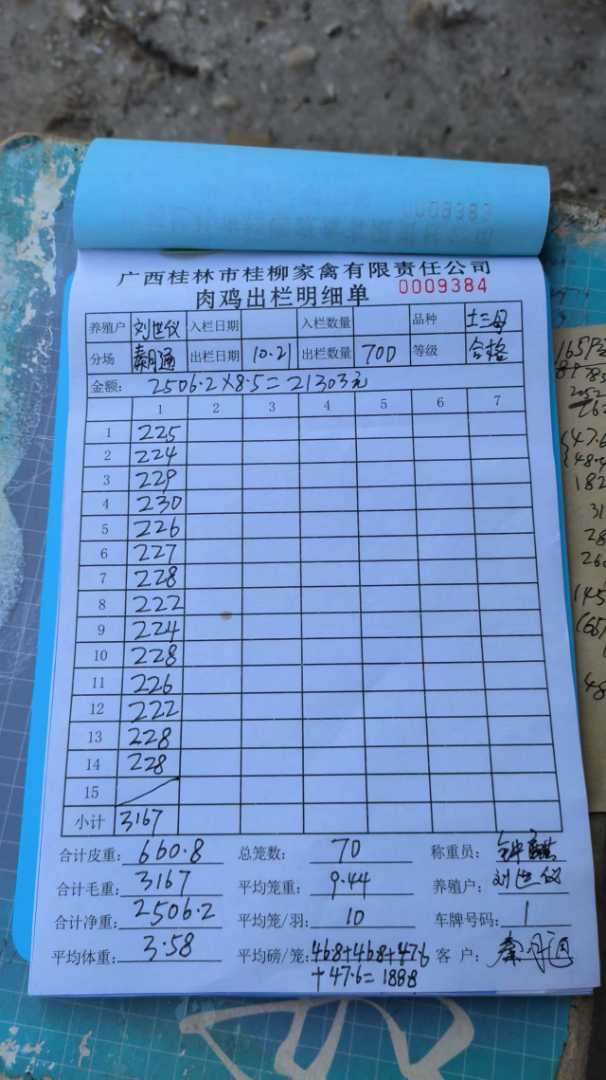 0009383
广西桂林市桂柳家禽有限责任公司
肉鸡出栏明细单 0009384
养殖户 刘世仪 入栏日期 入栏数量 品种 土三母
分场 秦月通 出栏日期 10.21 出栏数量 700 等级 合格
金额: 2506.2×8.5=21303元
1 2 3 4 5 6 7
1 225
2 224
3 229
4 230
5 226
6 227
7 228
8 222
9 224
10 228
11 226
12 222
13 228
14 228
15
小计 3167
合计皮重: 660.8 总笼数: 70 称重员:
合计毛重: 3167 平均笼重: 9.44 养殖户: 刘世仪
合计净重: 2506.2 平均笼/羽: 10 车牌号码: 1
平均体重: 3.58 平均磅/笼: 46.8+46.8+47.6 客户: 秦月通
+47.6=188.8